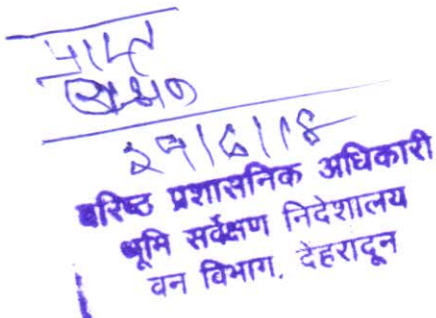 प्राप्त
29/6/18
वरिष्ठ प्रशासनिक अधिकारी
भूमि सर्वेक्षण निदेशालय
वन विभाग, देहरादून